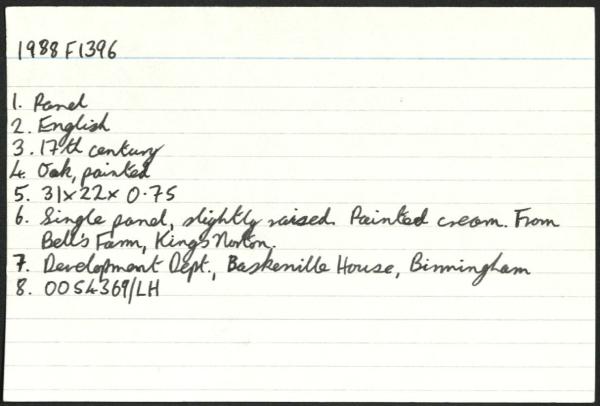 1988 F1396
1. Panel
2. English
3. 17th century
4. Oak, painted
5. 31x22x 0.75
6. Single panel, slightly raised. Painted cream. From
Bell's Farm, Kings Norton.
7. Development Dept., Baskerville House, Birmingham
8. 0054369/LH